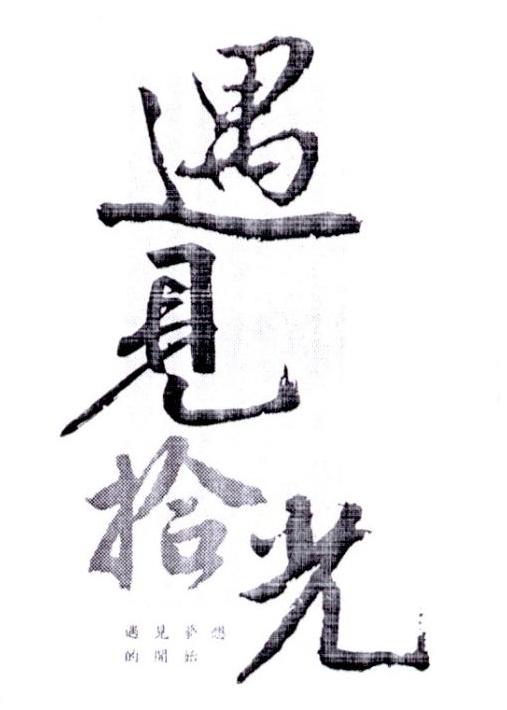 遇見拾光
遇見夢想
的開始